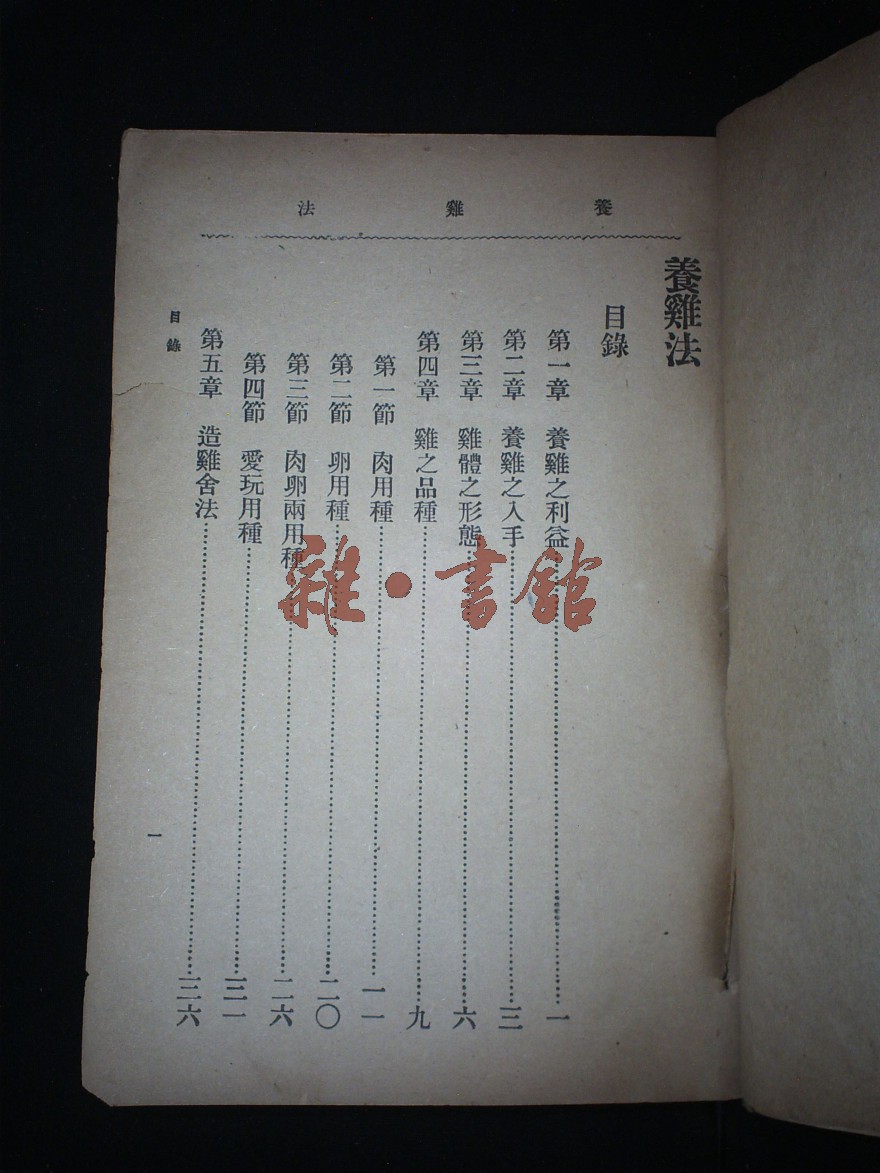 養雞法
養雞法
目錄
第一章 養雞之利益……一
第二章 養雞之入手……三
第三章 雞體之形態……六
第四章 雞之品種……九
第一節 肉用種……一一
第二節 卵用種……二〇
第三節 肉卵兩用種……二六
第四節 愛玩用種……三一
第五章 造雞舍法……三六
目錄
一
雜·書館